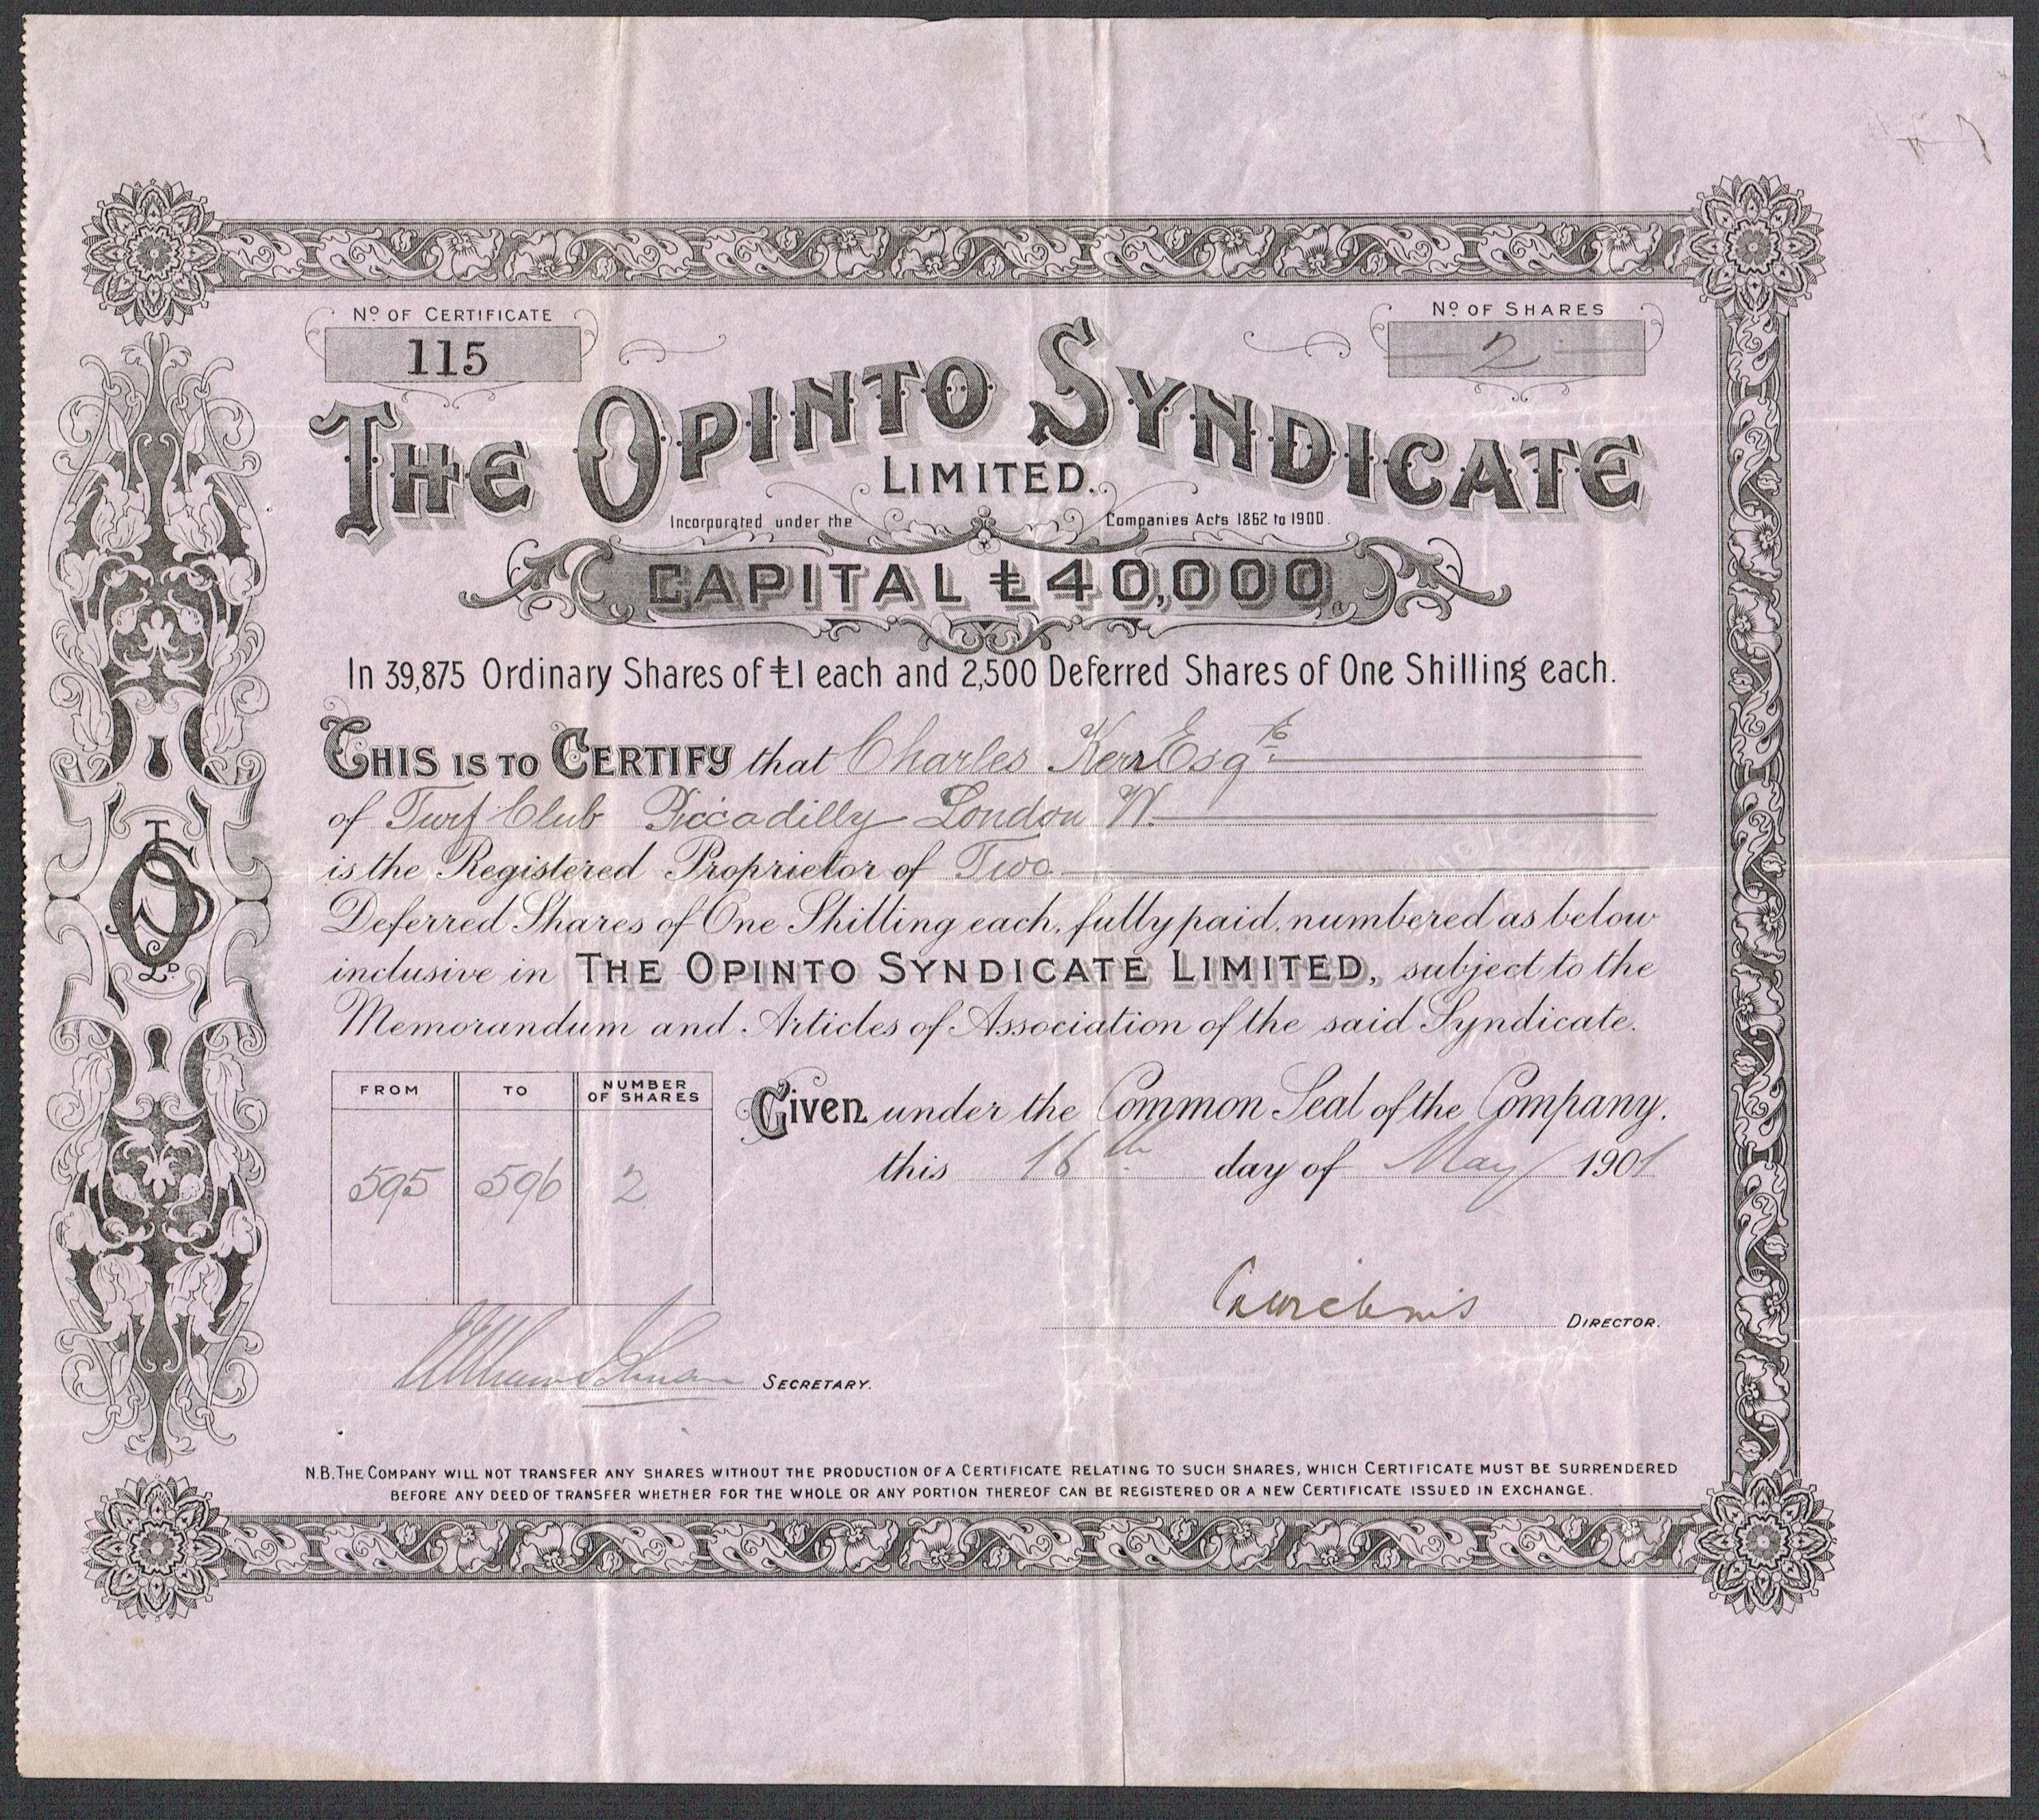 Nº OF CERTIFICATE
115
Nº OF SHARES
2
THE OPINTO SYNDICATE
LIMITED.
Incorporated under the Companies Acts 1862 to 1900.
CAPITAL £40,000
In 39,875 Ordinary Shares of £1 each and 2,500 Deferred Shares of One Shilling each.
THIS IS TO CERTIFY that Charles Kerr Esqre
of Turf Club Piccadilly London W.
is the Registered Proprietor of Two
Deferred Shares of One Shilling each, fully paid, numbered as below
inclusive in THE OPINTO SYNDICATE LIMITED, subject to the
Memorandum and Articles of Association of the said Syndicate.
FROM TO NUMBER OF SHARES
595 596 2
Given under the Common Seal of the Company.
this 16th day of May 1901
DIRECTOR.
SECRETARY.
N.B. THE COMPANY WILL NOT TRANSFER ANY SHARES WITHOUT THE PRODUCTION OF A CERTIFICATE RELATING TO SUCH SHARES, WHICH CERTIFICATE MUST BE SURRENDERED
BEFORE ANY DEED OF TRANSFER WHETHER FOR THE WHOLE OR ANY PORTION THEREOF CAN BE REGISTERED OR A NEW CERTIFICATE ISSUED IN EXCHANGE.